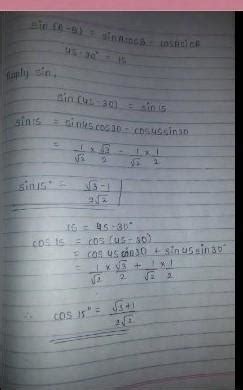 sin (A-B) = sinA cosB - cosA sinB
45-30° = 15
Apply sin,
sin (45-30) = sin15
sin15 = sin45 cos30 - cos45 sin30
= 1/√2 × √3/2 - 1/√2 × 1/2
sin15° = √3-1/2√2
15 = 45-30°
cos15 = cos (45-30)
= cos45 cos30 + sin45 sin30
= 1/√2 × √3/2 + 1/√2 × 1/2
∴ cos15° = √3+1/2√2